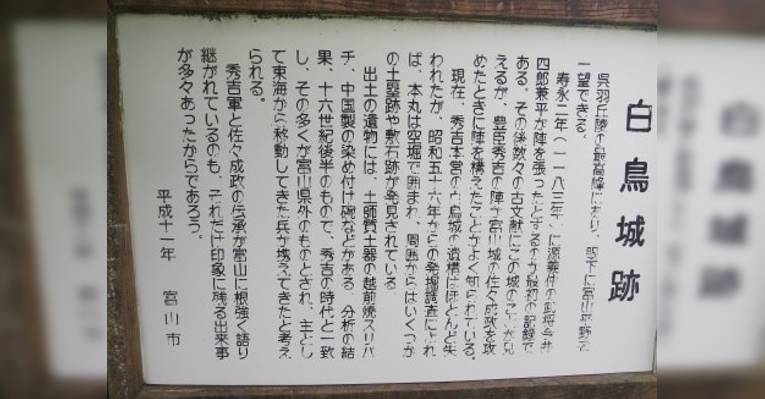 白鳥城跡
呉羽丘陵の最高峰にあり、眼下に富山平野を
一望できる。
寿永二年(一一八三年)に源義仲の武将今井
四郎兼平が陣を張ったとするのが最初の記録で
ある。その後数々の古文献にこの城の名が見
えるが、豊臣秀吉の陣が富山城の佐々成政を攻
めたときに陣を構えたことがよく知られている。
現在、秀吉本営の白鳥城の遺構はほとんど失
われたが、昭和五十六年からの発掘調査によれ
ば、本丸は空堀で囲まれ、周囲からはいくつか
の土塁跡や敷石跡が発見されている。
出土の遺物には、土師質土器の越前焼スリバ
チ、中国製の染め付け碗などがある。分析の結
果、十六世紀後半のもので、秀吉の時代と一致
し、その多くが富山県外のものとされ、主とし
て東海から移動してきた兵が携えてきたと考え
られる。
秀吉軍と佐々成政の伝承が富山に根強く語り
継がれているのも、それだけ印象に残る出来事
が多々あったからであろう。
平成十一年 富山市